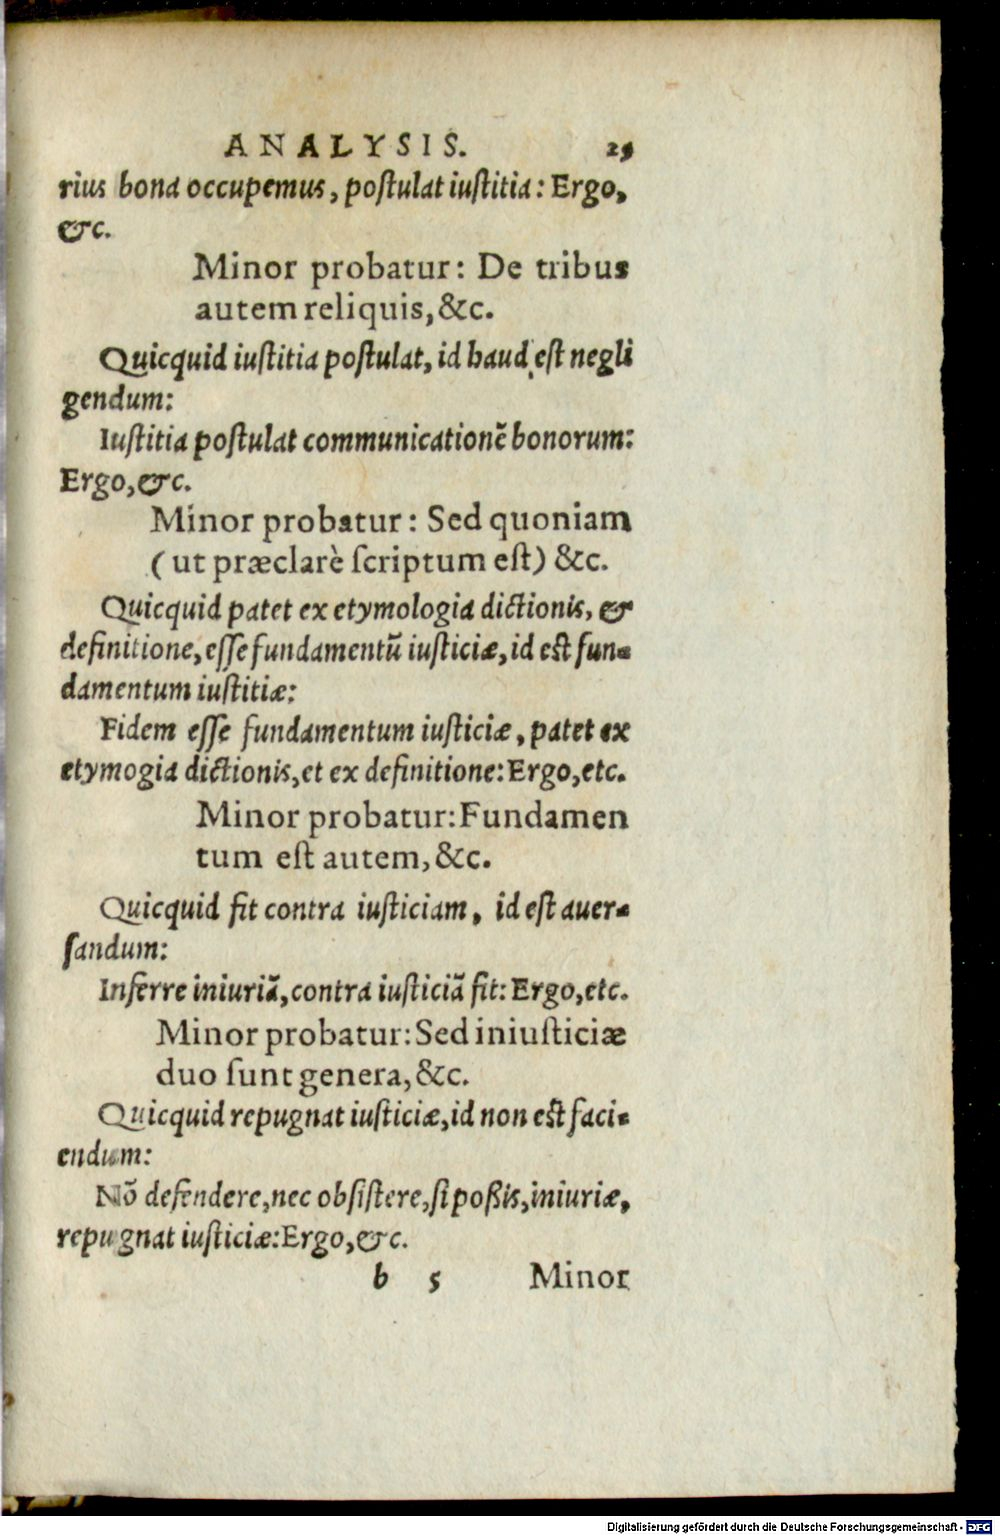 ANALYSIS. 25
rius bona occupemus, postulat iustitia: Ergo,
&c.
Minor probatur: De tribus
autem reliquis, &c.
Quicquid iustitia postulat, id haud est negli
gendum:
Iustitia postulat communicationẽ bonorum:
Ergo, &c.
Minor probatur: Sed quoniam
(ut præclarè scriptum est) &c.
Quicquid patet ex etymologia dictionis, &
definitione, esse fundamentũ iusticiæ, id est fun-
damentum iustitiæ:
Fidem esse fundamentum iusticiæ, patet ex
etymogia dictionis, et ex definitione: Ergo, etc.
Minor probatur: Fundamen
tum est autem, &c.
Quicquid fit contra iusticiam, id est auer-
sandum:
Inferre iniuriã, contra iusticiã fit: Ergo, etc.
Minor probatur: Sed iniusticiæ
duo sunt genera, &c.
Quicquid repugnat iusticiæ, id non est faci-
endum:
Nõ defendere, nec obsistere, si poßis, iniuriæ,
repugnat iusticiæ: Ergo, &c.
b 5 Minor
Digitalisierung gefördert durch die Deutsche Forschungsgemeinschaft - DFG